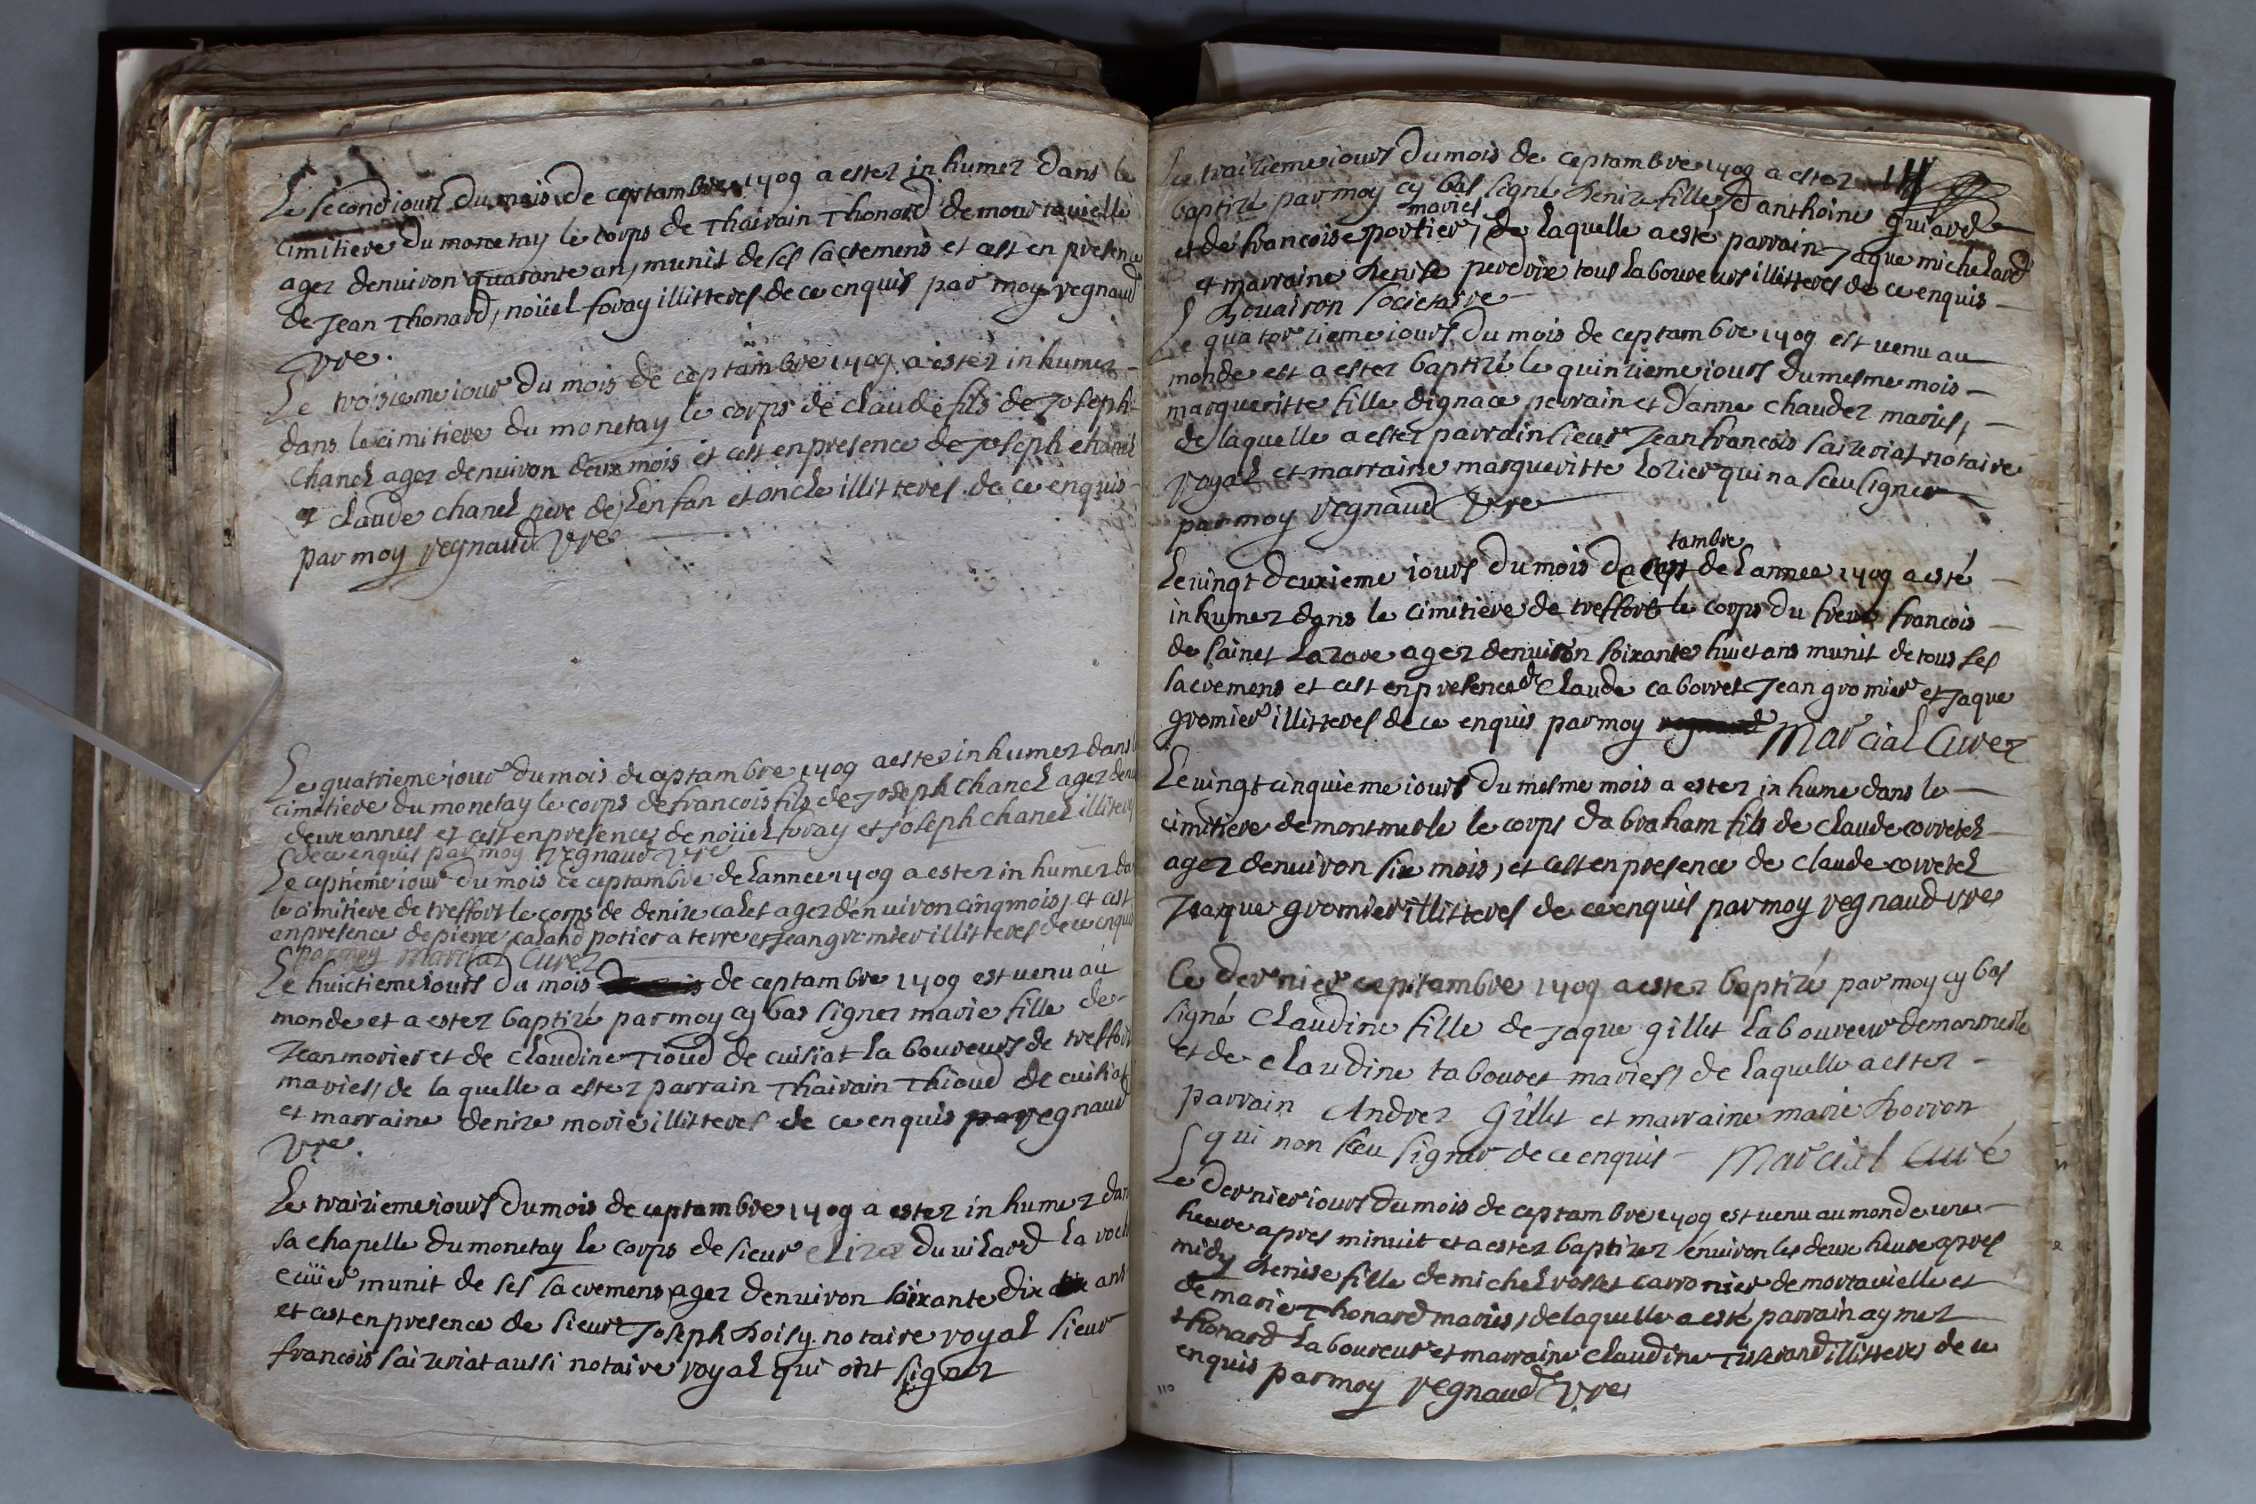 Le second iours du mois de ceptambre 1709 a ester inhumer dans le
cimitiere du monetay le corps de Thairain Thonard de mourtauielle
ager denuiron quarante an, munit de ses sacremens et cest en presence
de Jean Thonard, noüel foray illitteres de ce enquis par moy regnaud
vre.
Le troisieme iour du mois de ceptambre 1709 a ester inhumer
dans le cimitiere du monetay le corps de claude fils de Joseph
chanel ager denuiron deux mois et cest en presence de Joseph chanel
et claude chanel pere de lenfan et oncle illitteres de ce enquis
par moy regnaud vre
Le quatrieme iour du mois de ceptambre 1709 a ester inhumer dans
cimitiere du monetay le corps de francois fils de Joseph chanel ager denui
deux annees et cest en presence de noüel foray et Joseph chanel illitere
de ce enquis par moy regnaud vre
Le ceptieme iour du mois de ceptambre de lannee 1709 a ester inhumer da
le cimitiere de treffort le corps de denize calet ager denuiron cinq mois, et cest
en presence de pierre caland potier a terre et Jean gromier illitteres de ce enquis
par moy Marcial Curez
Le huictieme iours du mois de ceptambre 1709 est uenu au
monde et a ester baptizé par moy cy bas signer marie fille de
Jean morier et de claudine Tioud de cuisiat laboureurs de treffort
maries, de laquelle a ester parrain Thairain Thioud de cuisiat
et marraine denize morie illitteres de ce enquis par regnaud
vre.
Le traizieme iours du mois de ceptambre 1709 a ester inhumer dan
sa chapelle du monetay le corps de sieur du uilard la roch
ecüier munit de ses sacremens ager denuiron soixante dix ans
et cest en presence de sieur Joseph Doisy notaire royal sieur
francois saizeriat aussi notaire royal qui ont signer
Le traizieme iours du mois de ceptambre 1709 a ester
baptizé par moy cy bas signé Denize fille d anthoine guiard
maries
et de francoise portier, de laquelle a esté parrain Jaque michelard
et marraine Denise perdrix tous laboureurs illitteres de ce enquis
Douairon societaire
Le quatorzieme iours du mois de ceptambre 1709 est uenu au
monde est a ester baptizé le quinzieme iours du mesme mois
margueritte fille dignace perrain et danne chauder maries,
de laquelle a ester parrain sieur Jean francois saizeriat notaire
royal et marraine margueritte lozier qui na sceu signer
par moy regnaud vre
tambre
Le uingt deuxieme iours du mois de cep de lannee 1709 a esté
inhumer dans le cimitiere de treffort le corps du frere francois
de sainct Lazare ager denuiron soixante huict ans munit de tous ses
sacremens et cest en presence de Claude caborret Jean gromier et Jaque
gromier illitteres de ce enquis par moy Marcial Curez
Le uingt cinquieme iours du mesme mois a ester inhume dans le
cimitiere de montmerle le corps dabraham fils de claude corretel
ager denuiron six mois, et cest en presence de claude corretel
Jaque gromier illitteres de ce enquis par moy regnaud vre
Ce dernier cepitambre 1709 a ester baptizé par moy cy bas
signé Claudine fille de Jaque gillet laboureur de monmerle
et de claudine tabouret maries, de laquelle a ester
parrain Andrez Gillet et marraine marie Dorron
qui non sceu signer de ce enquis Marcial Curé
Le dernier iours du mois de ceptambre 1709 est uenu au monde une
heure apres minuit et a ester baptizer enuiron les deux heure apres
midy Denise fille de michel rosset carronier de mortauielle et
de marie Thonard maries, de laquelle a esté parrain aymez
thonard laboureur et marraine claudine Tisserand illitteres de ce
enquis par moy regnaud vre
110